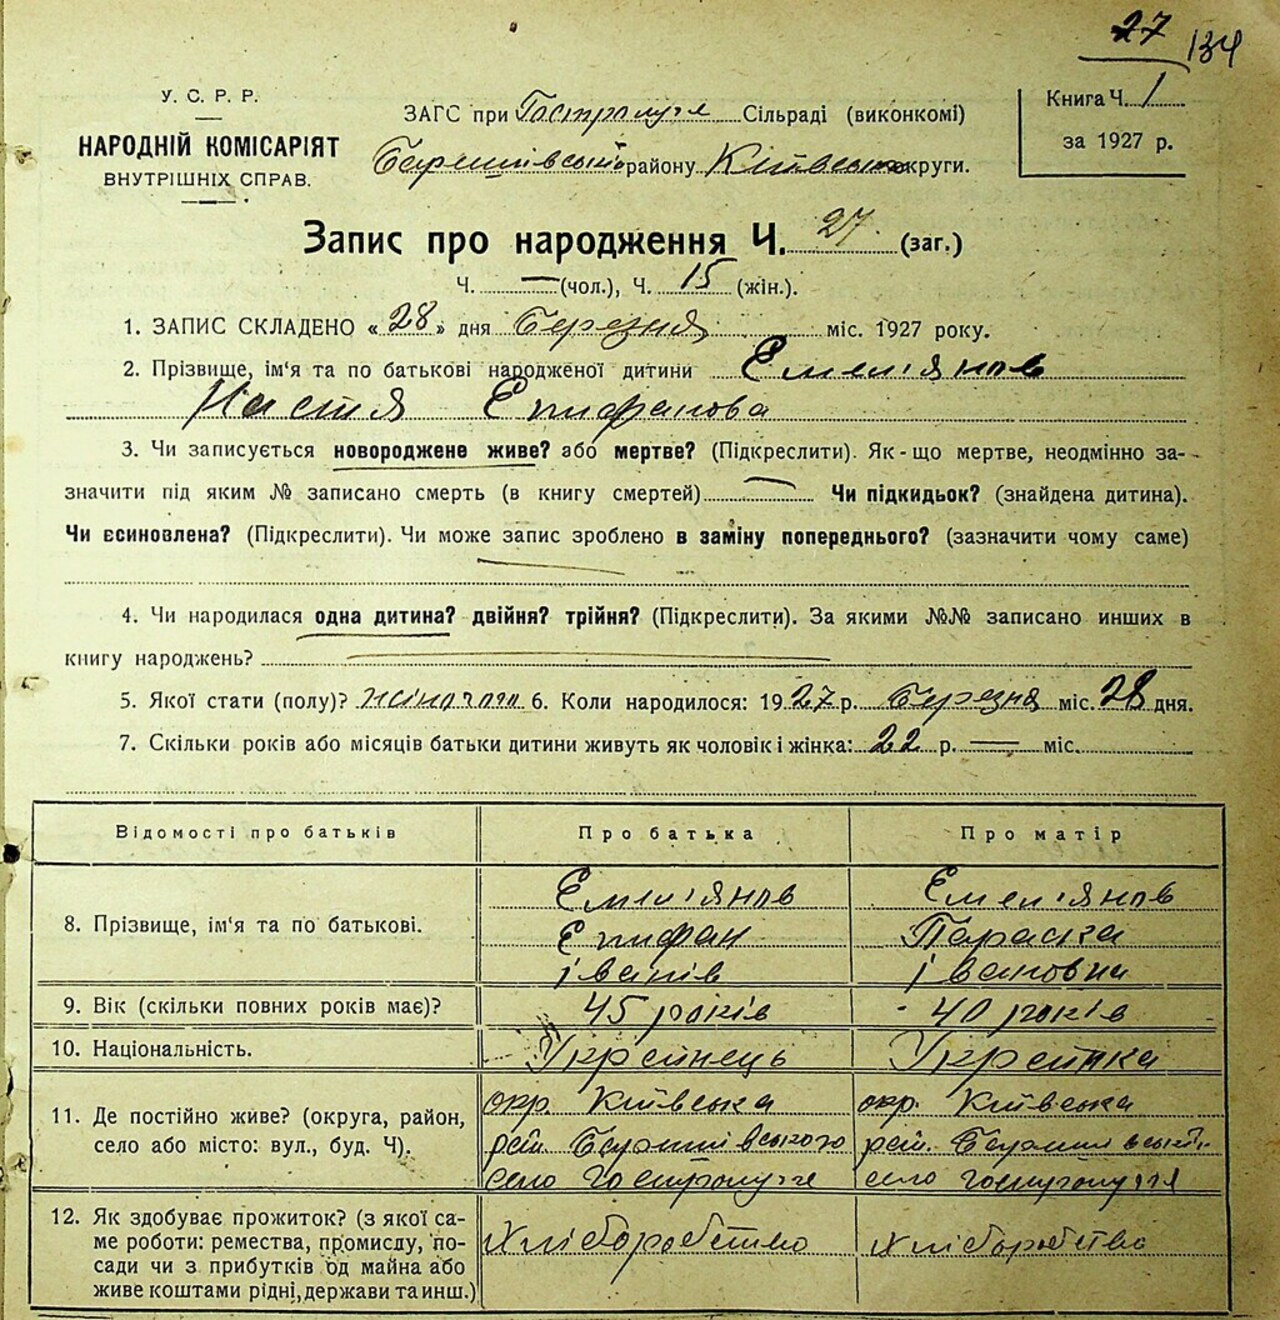 27 134
У. С. Р. Р.
НАРОДНІЙ КОМІСАРІЯТ
ВНУТРІШНІХ СПРАВ.
ЗАГС при Гостролучя Сільраді (виконкомі)
Баришівський району Київська округи.
Книга Ч. 1
за 1927 р.
Запис про народження Ч. 27 (заг.)
Ч. — (чол.), Ч. 15 (жін.).
1. ЗАПИС СКЛАДЕНО «28» дня Березня міс. 1927 року.
2. Прізвище, ім'я та по батькові народженої дитини Емел'янов
Настя Епифанова
3. Чи записується новороджене живе? або мертве? (Підкреслити). Як-що мертве, неодмінно за-
значити під яким № записано смерть (в книгу смертей) — Чи підкидьок? (знайдена дитина).
Чи єсиновлена? (Підкреслити). Чи може запис зроблено в заміну попереднього? (зазначити чому саме)
4. Чи народилася одна дитина? двійня? трійня? (Підкреслити). За якими №№ записано инших в
книгу народжень?
5. Якої стати (полу)? жіночого 6. Коли народилося: 1927 р. Березня міс. 28 дня.
7. Скільки років або місяців батьки дитини живуть як чоловік і жінка: 22 р. — міс.
Відомості про батьків Про батька Про матір
8. Прізвище, ім'я та по батькові.
Емел'янов
Епифан
Іванів
Емел'янов
Параска
Івановна
9. Вік (скільки повних років має)? 45 років 40 років
10. Національність. Українець Українка
11. Де постійно живе? (округа, район,
село або місто: вул., буд. Ч).
окр. Київська
рай. Баришівського
село Гостролучче
окр. Київська
рай. Баришівськ.
село Гостролуччя
12. Як здобуває прожиток? (з якої са-
ме роботи: ремества, промислу, по-
сади чи з прибутків од майна або
живе коштами рідні, держави та инш.)
Хліборобство
хліборобство